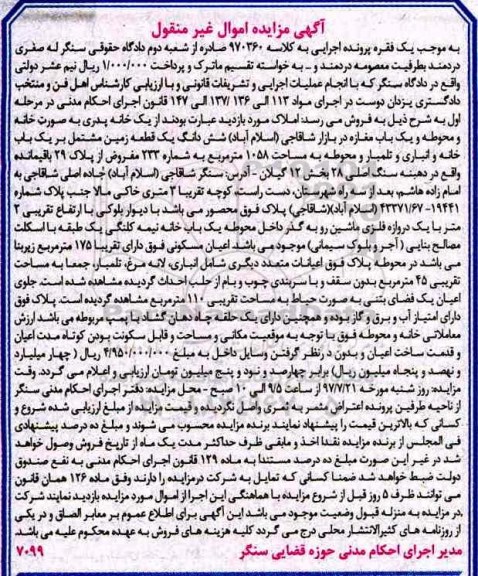 آگهی مزایده اموال غیر منقول
به موجب یک فقره پرونده اجرایی به کلاسه ۹۷۰۳۶۰ صادره از شعبه دوم دادگاه حقوقی سنگر له صغری
دردمند بطرفیت معصومه دردمند و ... به خواسته تقسیم ماترک و پرداخت ۱/۰۰۰/۰۰۰ ریال نیم عشر دولتی
واقع در دادگاه سنگر که با انجام عملیات اجرایی و تشریفات قانونی و با ارزیابی کارشناس اهل فن و منتخب
دادگستری یزدان دوست در اجرای مواد ۱۱۳ الی ۱۳۶ /۱۳۷ الی ۱۴۷ قانون اجرای احکام مدنی در مرحله
اول به شرح ذیل به فروش می رسد: املاک مورد بازدید عبارت بودند از یک خانه پدری به صورت خانه
و محوطه و یک باب مغازه در بازار شاقاجی (اسلام آباد) شش دانگ یک قطعه زمین مشتمل بر یک باب
خانه و انباری و تلمبار و محوطه به مساحت ۱۰۵۸ مترمربع به شماره ۲۳۳ مفروض از پلاک ۲۹ باقیمانده
واقع در دهبنه سنگ اصلی ۲۸ بخش ۱۲ گیلان - آدرس: سنگر شاقاجی (اسلام آباد) جاده اصلی شاقاجی به
امام زاده هاشم، بعد از سه راه شهرستان، دست راست، کوچه تقریبا ۳ متری خاکی مالا جنب پلاک شماره
۱۹۴۴۱-۴۳۳۷۱/۶۷ (اسلام آباد)(شاقاجی) پلاک فوق محصور می باشد با دیوار بلوکی با ارتفاع تقریبی ۲
متر با یک دروازه فلزی ماشین رو به گذر داخل محوطه یک باب خانه نیمه کلنگی یک طبقه با اسکلت
مصالح بنایی ( آجر و بلوک سیمانی) موجود می باشد اعیان مسکونی فوق دارای تقریبا ۱۷۵ مترمربع زیربنا
می باشد در محوطه پلاک فوق اعیانات متعدد دیگری شامل انباری، لانه مرغ، تلمبار، جمعا به مساحت
تقریبی ۴۵ مترمربع بدون سقف و با سربندی چوب و بام از حلب احداث گردیده مشاهده شده است. جلوی
اعیان یک فضای بتنی به صورت حیاط به مساحت تقریبی ۱۱۰ مترمربع مشاهده گردیده است. پلاک فوق
دارای امتیاز آب و برق و گاز بوده و همچنین دارای یک حلقه چاه دهان گشاد با پمپ مربوطه می باشد ارزش
معاملاتی خانه و محوطه فوق با توجه به موقعیت مکانی و مساحت و قابل سکونت بودن کوتاه مدت اعیان
و قدمت ساخت اعیان و بدون در نظر گرفتن وسایل داخل به مبلغ ۴/۹۵۰/۰۰۰/۰۰۰ ریال ( چهار میلیارد
و نهصد و پنجاه میلیون ریال) برابر چهارصد و نود و پنج میلیون تومان ارزیابی و اعلام می گردد. وقت
مزایده: روز شنبه مورخه ۹۷/۷/۲۱ از ساعت ۹/۵ الی ۱۰ صبح - محل مزایده: دفتر اجرای احکام مدنی سنگر
از ناحیه طرفین پرونده اعتراض مثمر به ثمری واصل نگردیده و قیمت مزایده از مبلغ ارزیابی شده شروع و
کسانی که بالاترین قیمت را پیشنهاد نمایند برنده مزایده محسوب می شوند و مبلغ ده درصد پیشنهادی
فی المجلس از برنده مزایده نقدا اخذ و مابقی ظرف حداکثر مدت یک ماه از تاریخ فروش وصول خواهد
شد در غیر این صورت مبلغ ده درصد مستندا به ماده ۱۲۹ قانون اجرای احکام مدنی به نفع صندوق
دولت ضبط خواهد شد ضمنا کسانی که تمایل به شرکت درمزایده را دارند وفق ماده ۱۲۶ همان قانون
می توانند ظرف ۵ روز قبل از شروع مزایده با هماهنگی این اجرا از اموال مورد مزایده بازدید نمایند شرکت
در مزایده به منزله قبول وضعیت موجود می باشد این آگهی برای اطلاع عموم بر معابر الصاق و در یکی
از روزنامه های کثیرالانتشار محلی درج می گردد کلیه هزینه های فروش به عهده محکوم علیه می باشد.
مدیر اجرای احکام مدنی حوزه قضایی سنگر ۷۰۹۹